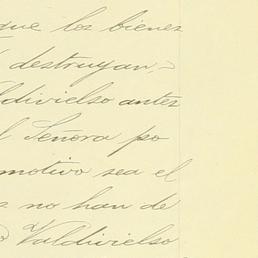 que los bienes
destruyan,
ldivielso antes
l Señora po
motivo sea el
s no han de
Valdivielso